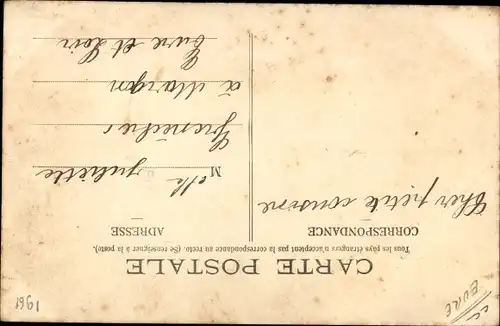 CARTE POSTALE
Tous les pays étrangers n'acceptent pas la correspondance au recto. (Se renseigner à la poste).
CORRESPONDANCE
ADRESSE
Cher petite cousine
Melle Juliette
à Margon
Eure et Loir
1961
EURE